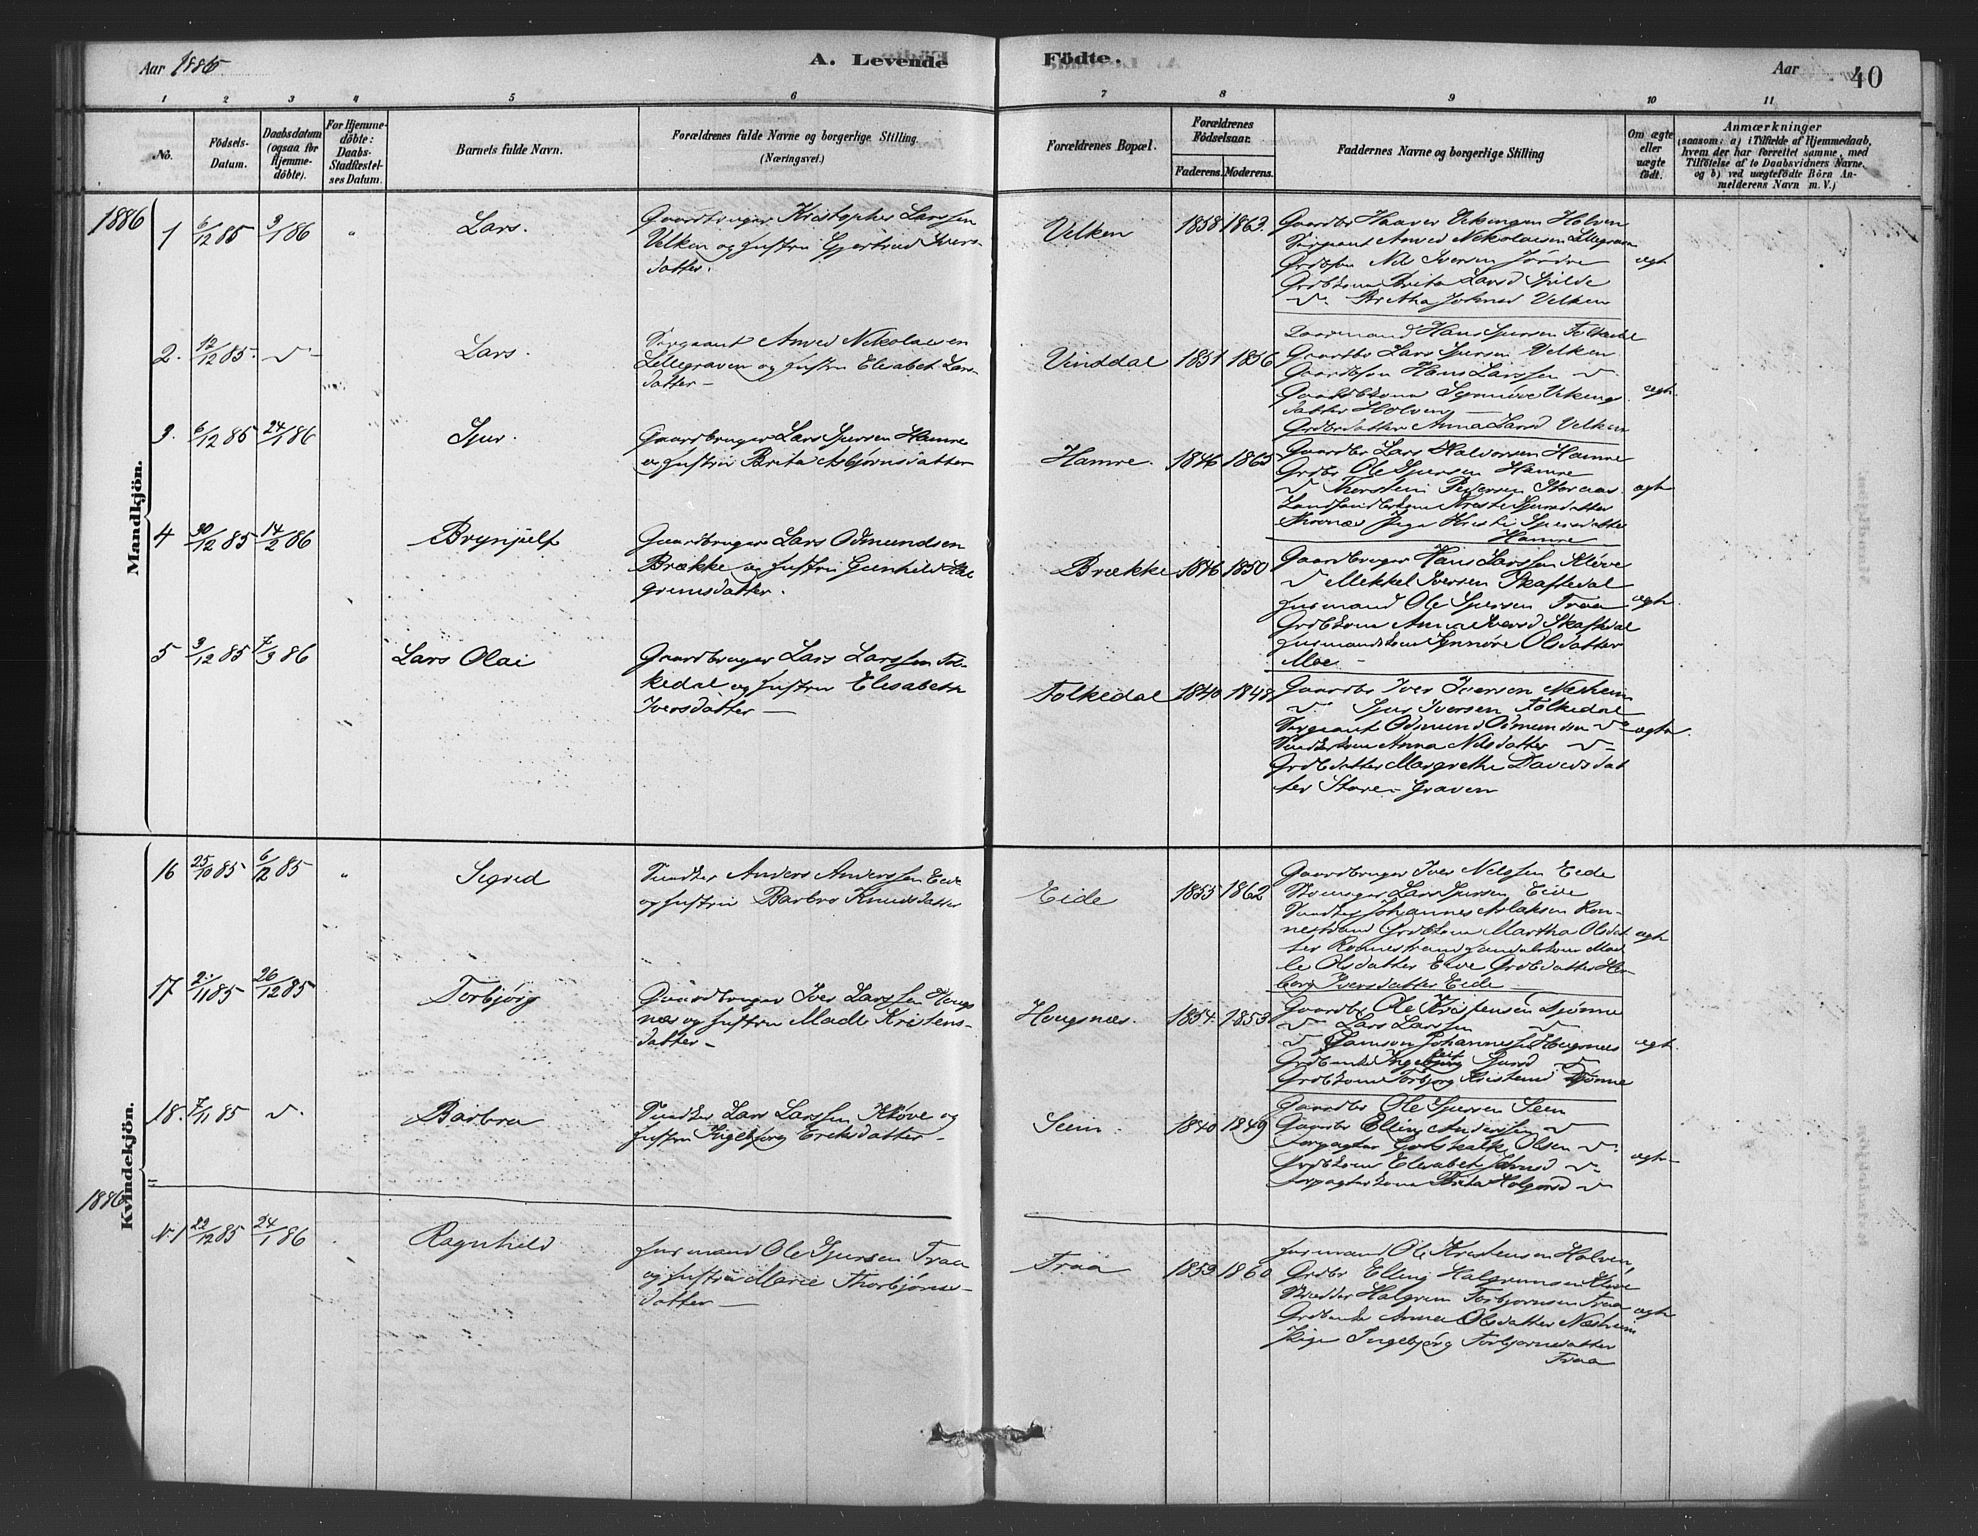 Aar 1886
A. Levende Födte.
Aar
40
1 2 3 4 5 6 7 8 9 10 11
No.
Födsels-Datum.
Daabsdatum (ogsaa for Hjemmedöbte).
For Hjemmedöbte: Daabs-Stadfæstelses Datum.
Barnets fulde Navn.
Forældrenes fulde Navne og borgerlige Stilling.
(Næringsvei.)
Forældrenes Bopæl.
Forældrenes Födselsaar.
Faderens. Moderens.
Faddernes Navne og borgerlige Stilling
Om ægte eller uægte födt.
Anmærkninger
(saasom: a) i Tilfælde af Hjemmedaab,
hvem der har forrettet samme, med
Tilföielse af to Daabsvidners Navne,
og b) ved uægtefödte Börn Anmelderens Navn m. V.)
1886
Mandkjön.
1 6/12 85 3/1 86 " Lars.
Gaardbruger Kristopher Larssen
Velken og hustru Gjertrud Ivers-
datter.
Velken 1858 1863.
Gaardbr Haaver Vikingsen Holven
Sergeant Amed Nikolaisen Lillegraven
Grdbsøn Nils Iversen Jördre
Grdbkona Brita Larsd Spilde
v. Britha Johnsd Velken
ægt
2. 12/12 85. v - Lars.
Sergeant Amed Nikolaisen
Lillegraven og hustru Elisabet Lars-
datter -
Vinddal 1851 1856
Hans Sjursen Folkedal
Gaardbr Lars Sjursen Velken
Gaardbsøn Hans Larssen v.
Gaardbkona Synnöve Vikings
datter Holven
Grdbrdatter Anna Larsd Velken
ægt.
3. 6/12 85 24/1 86 Sjur.
Gaardbruger Lars Sjursen Hamre
og hustru Brita Asbjörnsdatter
Hamre. 1846 1865
Gaardbr Lars Halvorsen Hamre
Grdbr Ole Sjursen Hamre
v Thorstein Pedersen Storaas
Sjursdatter
Pige Kristi Sjursdatter
Hamre
ægt
4 30/12 85 14/2 86 Brynjulf
Gaardbruger Lars Odmundsen
Brække og hustru Gunhild Hal
grimsdatter.
Brække 1846 1850
Gaardbruger Hans Larssen Kløve
v Mikkel Iversen Skaftedal
Husmand Ole Sjursen Traa
Grdbkona Anna Iversd Skaftedal
Husmandskona Synnöve Olsdatter
Moe -
ægt.
5 3/12 85 7/3 86 Lars Olai
Gaardbruger Lars Larssen Fol-
kedal og hustru Elisabeth
Iversdatter -
Folkedal 1840 1848
Gaardbr Iver Iversen Nesheim
v Sjur Iversen Folkedal
Sergeant Odmund Odmundsen v.
Anna Nilsdatter v-
Grdbdatter Margrethe Davidsdat
ter Store-Graven
ægt.
Kvindekjön.
16 25/10 85 6/12 85 " Sigrid
Anders Anderssen Eide
og hustru Barbro Knudsdatter
Eide 1855 1862
Gaardbruger Iver Nilssen Eide
Lars Sjursen Eide
Johannes Aslaksen Ron-
nestrand Grdbkona Martha Olsdat
ter Ronnestrand
Olsdatter Eide Grdbdatter
Iversdatter Eide -
ægt
17 2/11 85 26/12 85 Torbjörg
Gaardbruger Iver Larssen Haugs
næs og hustru Madle Kristens-
datter -
Haugsnæs. 1854. 1853
Gaardbr Ole Kristensen Djönne
v Lars Larssen v
v Samson Johannessen Haugsnæs
Grdbenke Sjursd v
Grdbkona Torbjörg Kristensd Djönne
ægt.
18. 7/11 85 v. Barbra
Lars Larssen Kløve og
hustru Ingebjorg Eriksdatter -
Seim. 1840 1849
Gaardbr Ole Sjursen Seim
Gaardbr Elling Andersen v
Forpagter Gotskalk Olsen v.
Grdbkona Elisabet Johnsd v.
Forpagterkona Brita Holgersd v
ægt-
1886
N. 1 22/12 85 24/1 86 Ragnhild
Husmand Ole Sjursen Traa
og hustru Marie Thorbjörns-
datter -
Traa 1853 1860
Husmand Ole Kristensen Holven,
Grdbr Elling Halgrimsen Kløve
Halgrim Torbjörnsen Traa
Grdbenke Anna Olsdatter Næsheim
Pige Ingebjörg Torbjörnsdatter
Traa
ægt